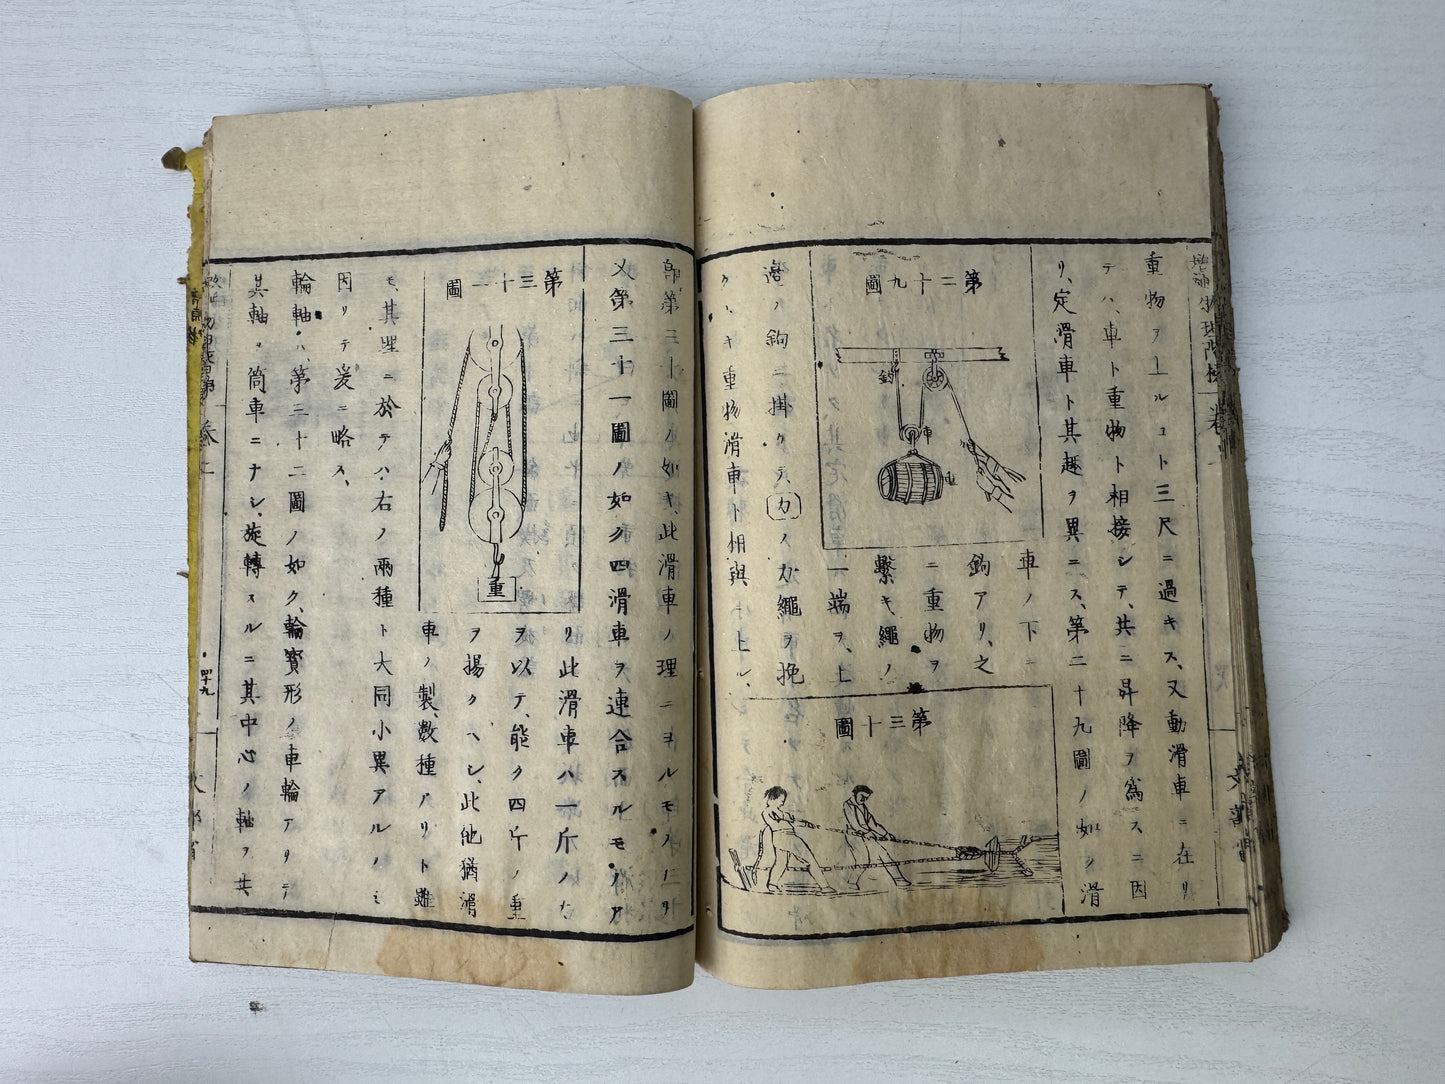 増補物理階梯 卷一
文部省
重物ヲ上ルヿト三尺ニ過キス、又動滑車ニ在リ
テハ、車ト重物ト相接シテ、共ニ昇降ヲ為ス、ニ因
リ、定滑車ト其趣ヲ異ニス、第二十九圖ノ如ク滑
第二十九圖
鈎
車
車ノ下ニ
鈎アリ、之
ニ重物ヲ
繋キ、繩ノ
一端ヲ、上
ノ鉤ニ掛ケテ、力ノ方繩ヲ挽
キ重物滑車ト相與ニ上ル、
第三十圖
部第三十圖ノ如キ、此滑車ノ理ニヨルモノナリ
又第三十一圖ノ如ク四滑車ヲ連合スルモノア
第三十一圖
重
リ此滑車ハ一斤ノ力
ヲ以テ、能ク四斤ノ重
ヲ揚クヘシ、此他猶滑
車ノ製、數種アリト雖
モ、其理ニ於テハ、右ノ兩種ト大同小異アルノミ
因リテ爰ニ略ス、
輪軸ハ、第三十二圖ノ如ク、輪實形ノ車輪アリテ
其軸ヲ筒車ニナシ、旋轉スルニ其中心ノ軸ヲ共
四十九
文部省